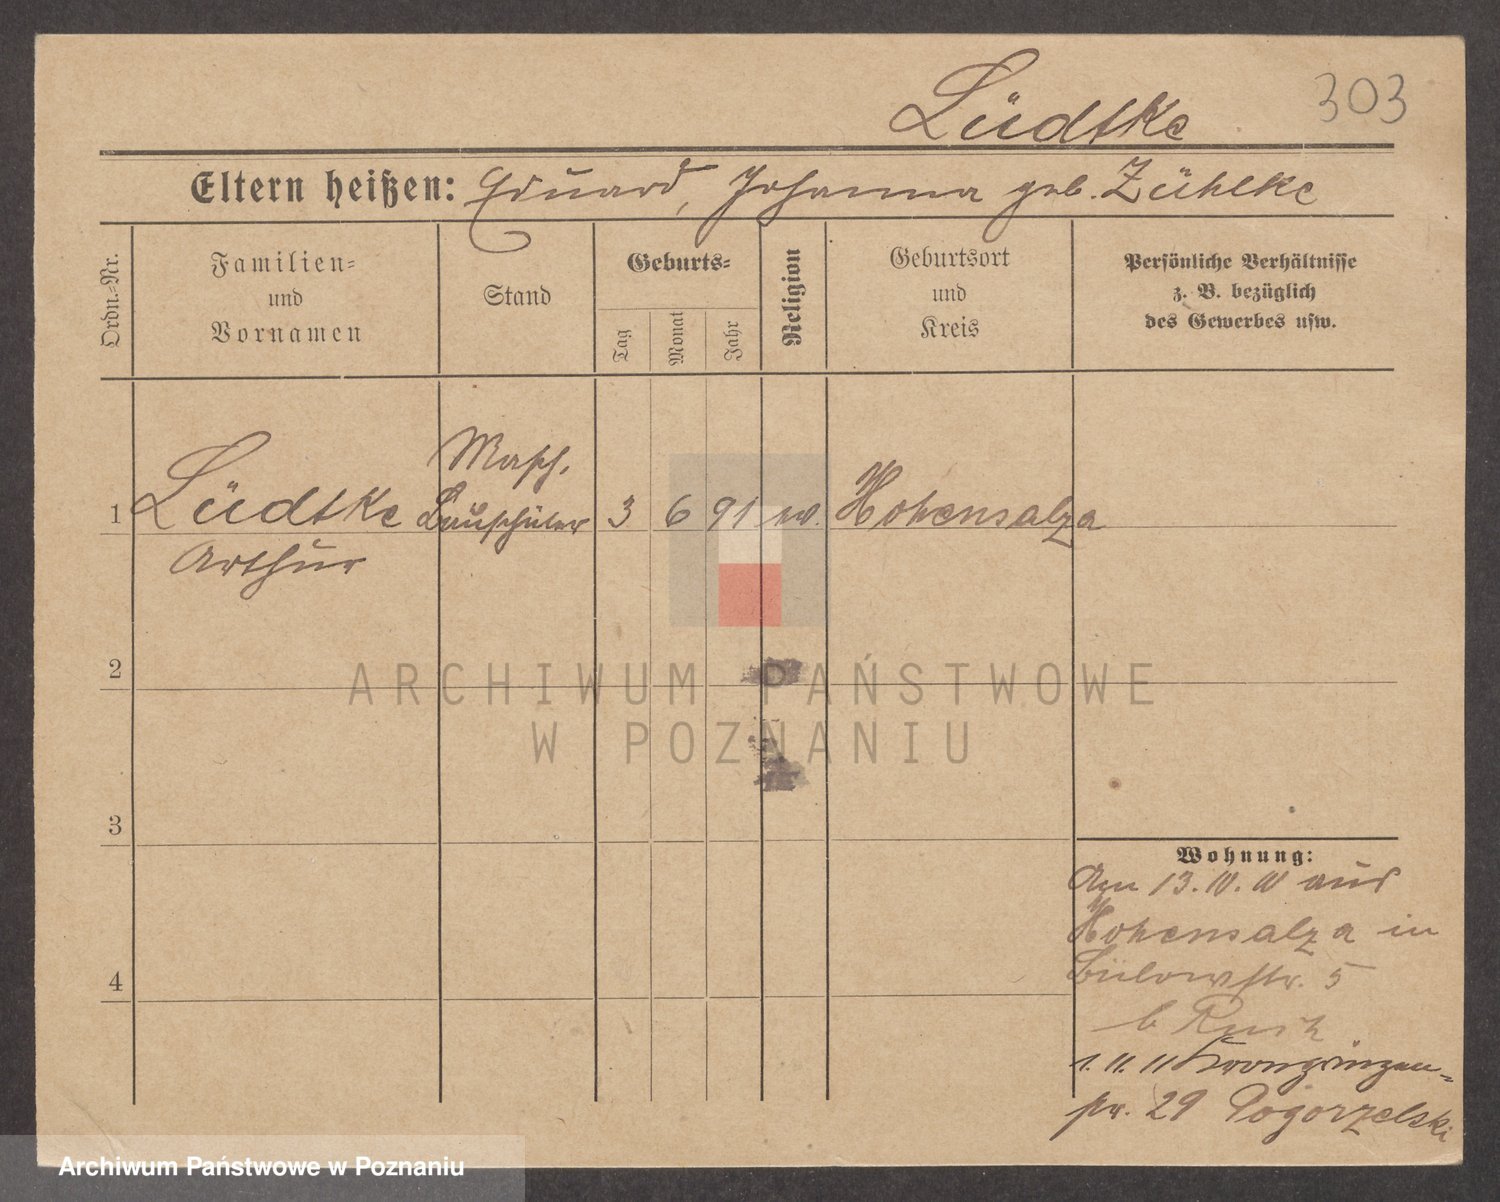 303
Lüdtke
Eltern heißen: Eduard, Johanna geb. Zühlke
Ordn.-Nr.
Familien-
und
Vornamen
Stand
Geburts-
Tag
Monat
Jahr
Religion
Geburtsort
und
Kreis
Persönliche Verhältnisse
z. B. bezüglich
des Gewerbes usw.
1 Lüdtke Masch. Bauschüler 3 6 91 ev. Hohensalza
Arthur
2
3
4
Wohnung:
Am 13. IV. aus
Hohensalza in
Bülowstr. 5
b
1. 11. 11 Kronprinzen-
str. 29 Pogorzelski
ARCHIWUM PAŃSTWOWE
W POZNANIU
Archiwum Państwowe w Poznaniu